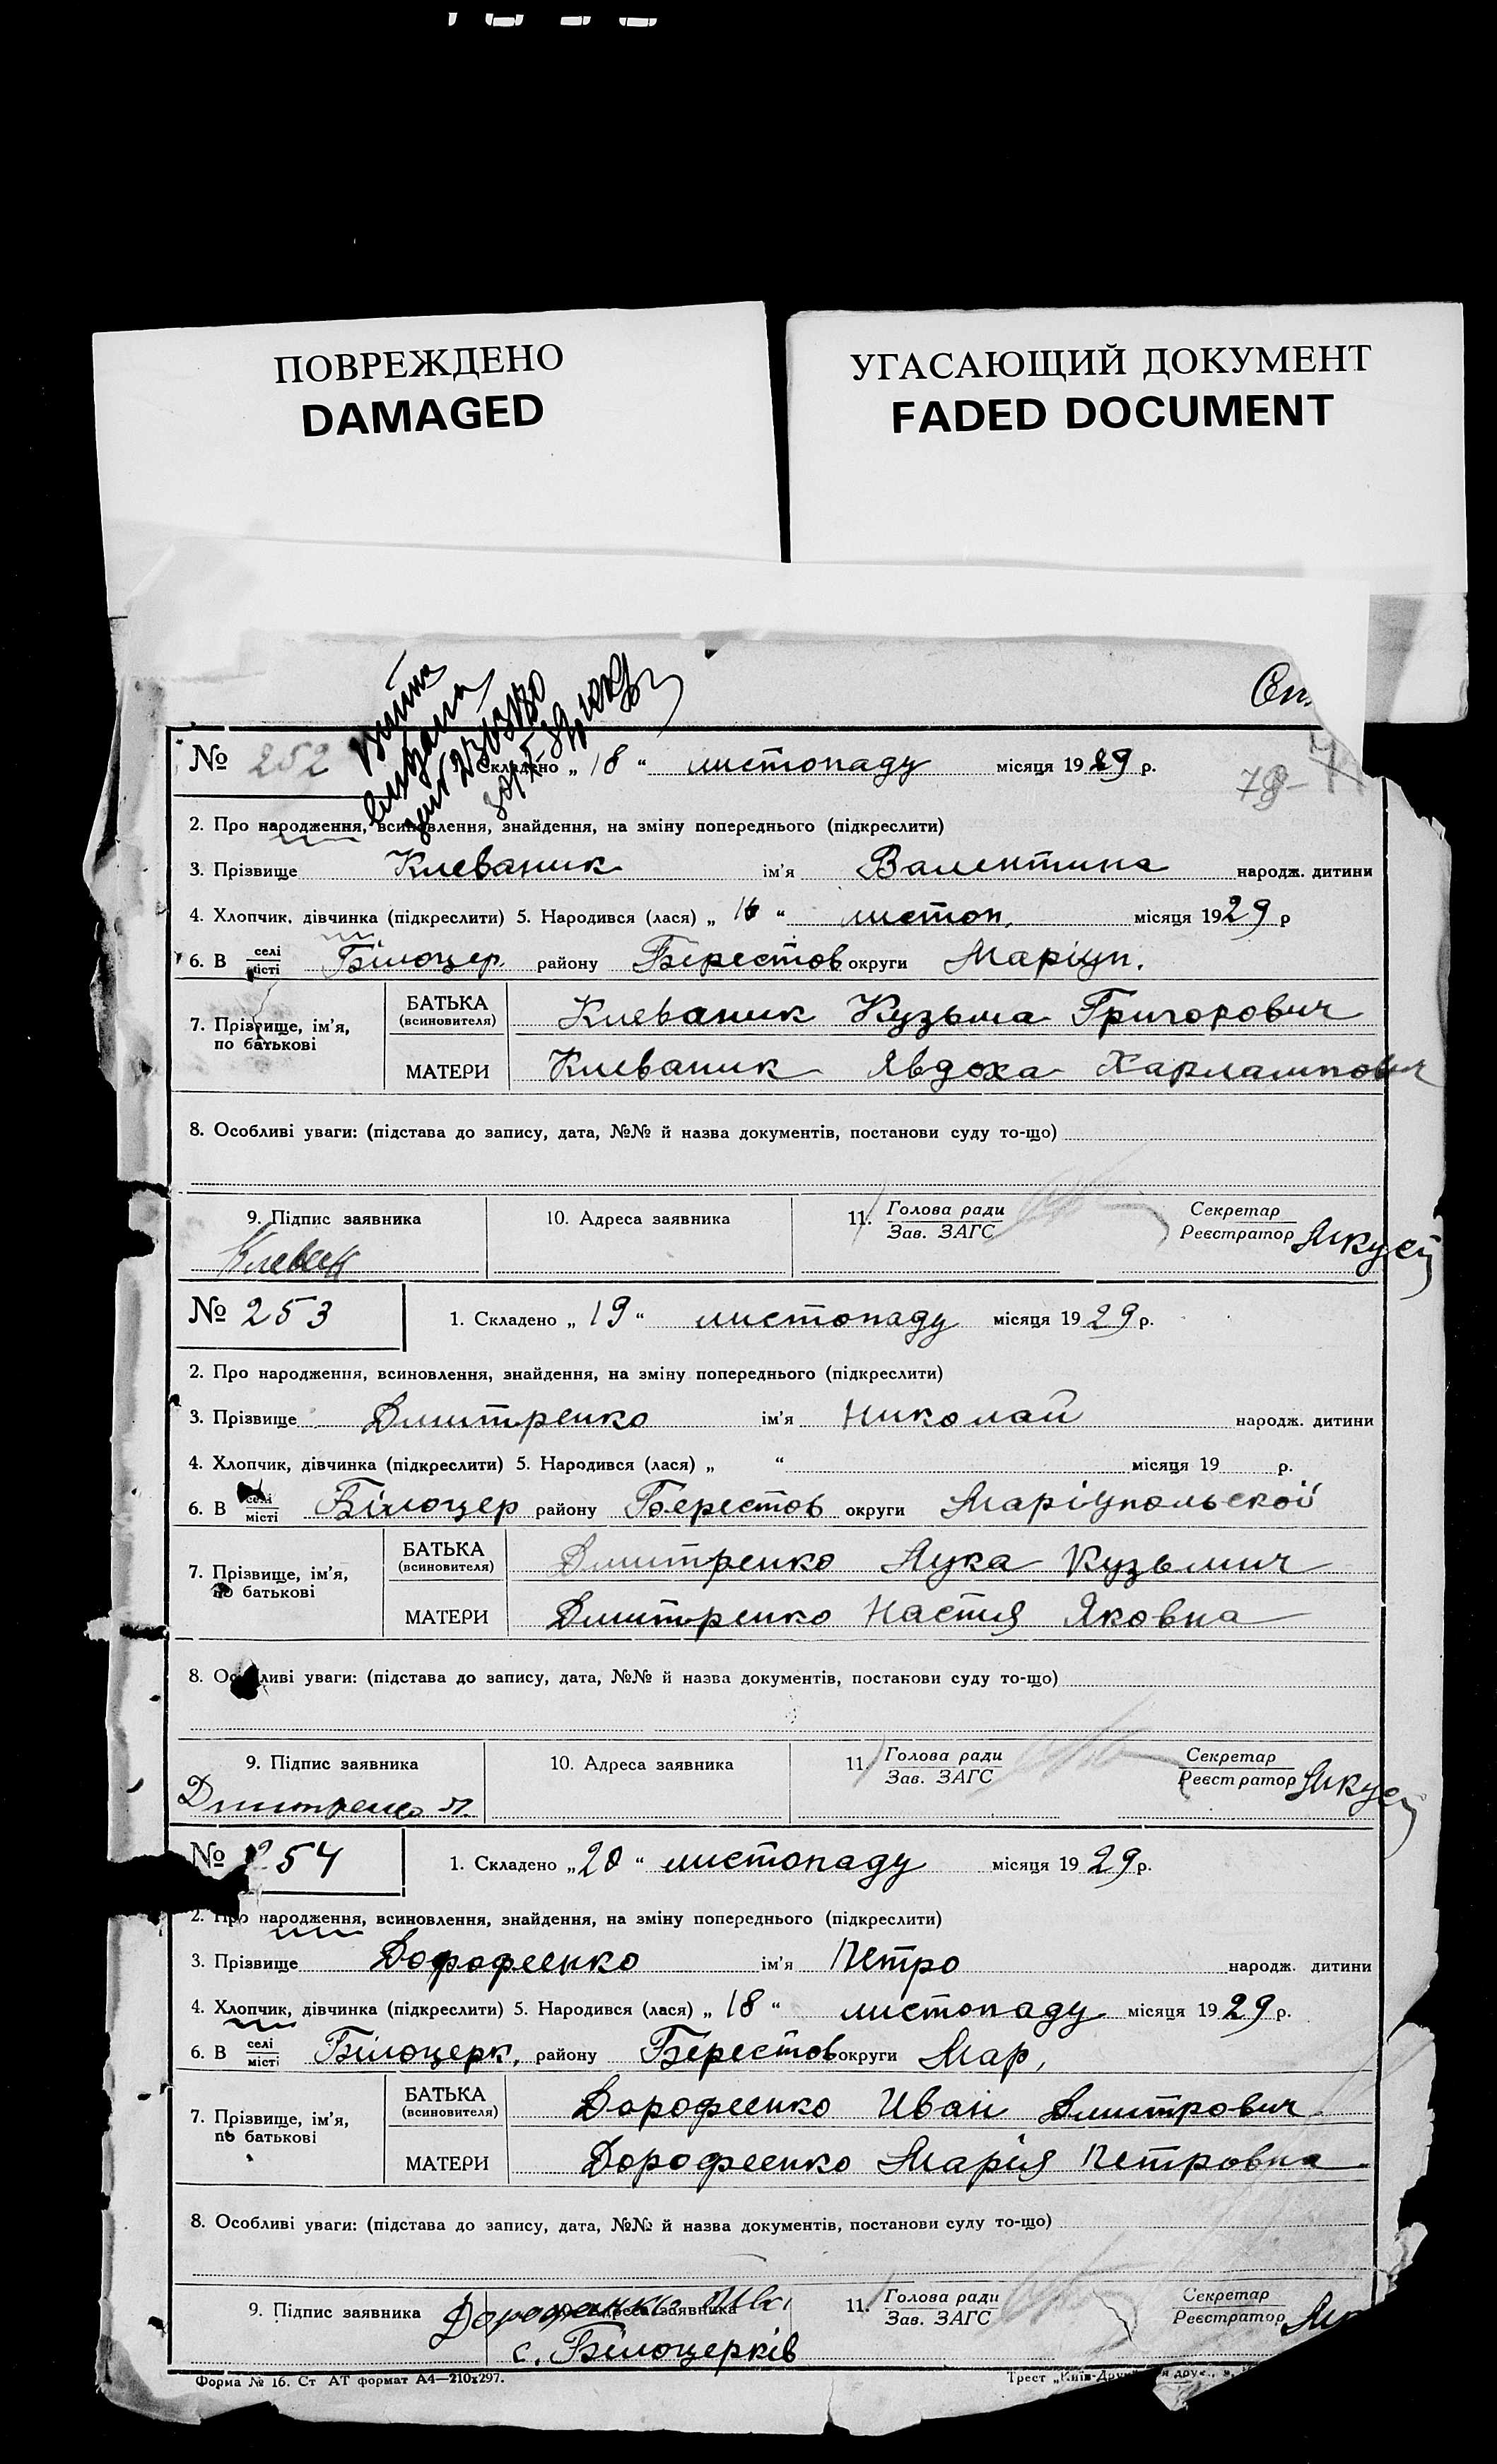 ПОВРЕЖДЕНО
DAMAGED
УГАСАЮЩИЙ ДОКУМЕНТ
FADED DOCUMENT
№ 252
Складено „ 18 “ листопаду місяця 1929 р.
78-
2. Про народження, всиновлення, знайдення, на зміну попереднього (підкреслити)
3. Прізвище Клеваник ім'я Валентина народж. дитини
4. Хлопчик, дівчинка (підкреслити) 5. Народився (лася) „ 16 “ листоп. місяця 1929 р
6. В селі місті Білоцер. району Берестов округи Маріуп.
7. Прізвище, ім'я, по батькові
БАТЬКА (всиновителя) Клеваник Кузьма Григорович
МАТЕРИ Клеваник Явдоха Харлампович
8. Особливі уваги: (підстава до запису, дата, №№ й назва документів, постанови суду то-що)
9. Підпис заявника 10. Адреса заявника 11. Голова ради Зав. ЗАГС Секретар Реєстратор
№ 253
1. Складено „ 19 “ листопаду місяця 1929 р.
2. Про народження, всиновлення, знайдення, на зміну попереднього (підкреслити)
3. Прізвище Дмитренко ім'я Николай народж. дитини
4. Хлопчик, дівчинка (підкреслити) 5. Народився (лася) „ “ місяця 19 р.
6. В селі місті Білоцер району Берестов округи Маріупольскої
7. Прізвище, ім'я, по батькові
БАТЬКА (всиновителя) Дмитренко Лука Кузьмич
МАТЕРИ Дмитренко Настя Яковна
8. Особливі уваги: (підстава до запису, дата, №№ й назва документів, постанови суду то-що)
9. Підпис заявника 10. Адреса заявника 11. Голова ради Зав. ЗАГС Секретар Реєстратор
№ 254
1. Складено „ 20 “ листопаду місяця 1929 р.
2. Про народження, всиновлення, знайдення, на зміну попереднього (підкреслити)
3. Прізвище Дорофеенко ім'я Петро народж. дитини
4. Хлопчик, дівчинка (підкреслити) 5. Народився (лася) „ 18 “ листопаду місяця 1929 р.
6. В селі місті Білоцерк. району Берестов округи Мар.
7. Прізвище, ім'я, по батькові
БАТЬКА (всиновителя) Дорофеенко Иван Дмитрович
МАТЕРИ Дорофеенко Марія Петровна
8. Особливі уваги: (підстава до запису, дата, №№ й назва документів, постанови суду то-що)
9. Підпис заявника Адреса заявника 11. Голова ради Зав. ЗАГС Секретар Реєстратор
с. Білоцерків
Форма № 16. Ст АТ формат А4—210х297.
Трест